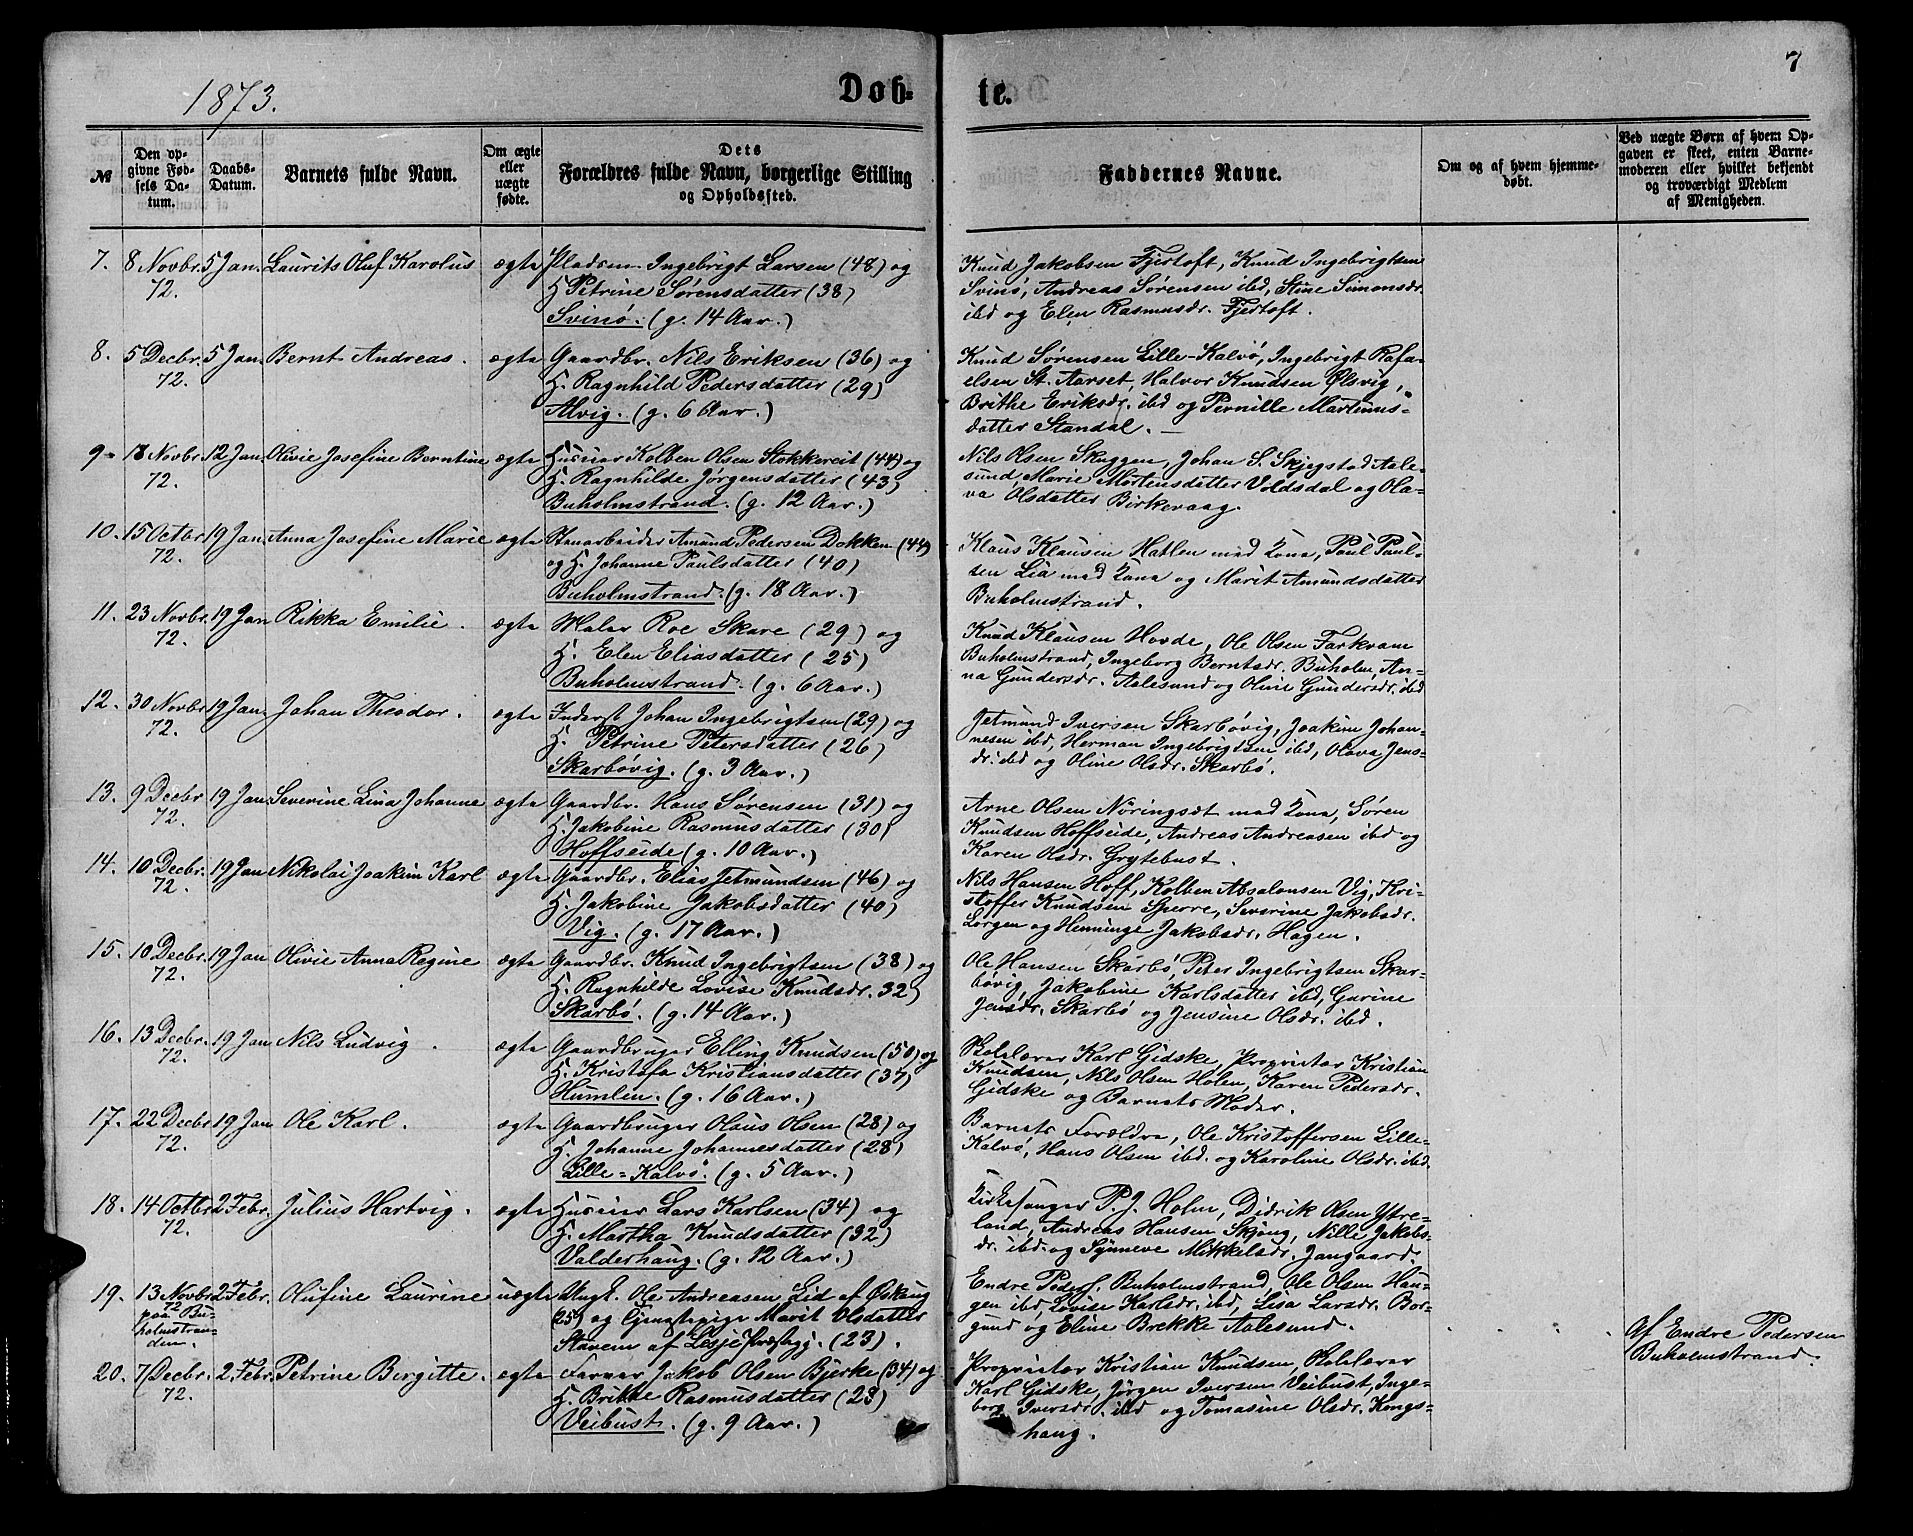 1873.
Døb-
te.
7
№
Den op-
givne Fød-
sels Da-
tum.
Daabs-
Datum.
Barnets fulde Navn.
Om ægte
eller
uægte
fødte.
Dets
Forældres fulde Navn, borgerlige Stilling
og Opholdssted.
Faddernes Navne.
Om og af hvem hjemme-
døbt.
Ved uægte Børn af hvem Op-
gaven er skeet, enten Barne-
moderen eller hvilket bekjendt
og troværdigt Medlem
af Menigheden.
7. 8 Novbr. 5 Jan. Laurits Oluf Karolus ægte Pladsm. Ingebrigt Larsen (48) og
72. H. Petrine Sørensdatter (38)
Svinø. (g. 14 Aar.)
Knud Jakobsen Fjertoft, Knud Ingebrigtsen
Svinø, Andreas Sørensen ibd, Stine Simonsdr.
ibd og Elen Rasmusdr. Fjertoft.
8. 5 Decbr. 5 Jan. Bernt Andreas. ægte Gaardbr. Nils Eriksen (36) og
72. H. Ragnhild Pedersdatter (29)
Alvig. (g. 6 Aar.)
Knud Sørensen Lille-Kalvø, Ingebrigt Rafa-
elsen St. Aarset, Halvor Knudsen Ølsvig,
Brithe Eriksdr. ibd og Pernille Martinus-
datter Standal. —
9. 18 Novbr. 12 Jan. Olivie Josefine Berntine ægte Husmand Kolben Olsen Stokkereit (44) og
72. H. Ragnhilde Jørgensdatter (43)
Buholmstrand. (g. 12 Aar.)
Nils Olsen Skuggen, Johan S. Skjegstad Aale-
sund, Marie Mortensdatter Voldsdal og Ola-
va Olsdatter Birkevaag.
10. 15 Octbr. 19 Jan. Anna Josefine Marie ægte Stenarbeider Amund Pedersen Dokken (44)
72. og H. Johanne Paulsdatter (40)
Buholmstrand. (g. 18 Aar.)
Klaus Klausen Hatlen med Kona, Paul Paul-
sen Lia med Kona og Marit Amundsdatter
Buholmstrand.
11. 23 Novbr. 19 Jan Rikka Emilie. ægte Maler Roe Skare (29) og
72. H. Elen Eliasdatter (25)
Buholmstrand. (g. 6 Aar.)
Knud Klausen Hovde, Ole Olsen Farkvam
Buholmstrand, Ingeborg Berntsdr. Buholm, An-
na Gundersdr. Aalesund og Oline Gundersdr. ibd
12. 30 Novbr 19 Jan. Johan Theodor. ægte Inderst Johan Ingebrigtsen (29) og
72. H. Petrine Petersdatter (26)
Skarbøvig. (g. 3 Aar.)
Jetmund Iversen Skarbøvig, Joakim Johan-
nesen ibd, Herman Ingebrigtsen ibd, Olava Jens-
dr. ibd og Oline Olsdr. Skarbø.
13. 9 Decbr 19 Jan Severine Lina Johanne ægte Gaardbr. Hans Sørensen (31) og
72. H. Jakobine Rasmusdatter (30)
Hoffseide (g. 10 Aar.)
Arne Olsen Nøringsæt med Kona, Søren
Knudsen Hoffseide, Andreas Andreasen ibd og
Karen Olsdr. Grytebust.
14. 10 Decbr. 19 Jan Nikolai Joakim Karl ægte Gaardbr. Elias Jetmundsen (46) og
72. H. Jakobine Jakobsdatter (40)
Vig. (g. 17 Aar.)
Nils Hansen Hoff, Kolben Absalonsen Vig, Kri-
stoffer Knudsen Sperre, Severine Jakobsdr.
Lorgen og Henninge Jakobsdr. Hagen.
15. 10 Decbr. 19 Jan Olivie Anna Regine ægte Gaardbr. Knud Ingebrigtsen (38) og
72. H. Ragnhilde Lovise Knudsdr. 32)
Skarbø. (g. 14 Aar.)
Ole Hansen Skarbø, Peter Ingebrigtsen Skar-
bøvig, Jakobine Karlsdatter ibd, Gurine
Jensdr. Skarbø og Jensine Olsdr. ibd.
16. 13 Decbr. 19 Jan Nils Ludvig. ægte Gaardbruger Elling Knudsen (50) og
72. H. Kristofa Kristiansdatter (37)
Humlen. (g. 16 Aar.)
Skolelærer Karl Gidske, Proprietær Kristian
Knudsen, Nils Olsen Holen, Karen Pedersdr.
Gidske og Barnets Moder.
17. 22 Decbr 19 Jan Ole Karl. ægte Gaardbruger Olaus Olsen (28) og
72. H. Johanne Johannesdatter (28)
Lille-Kalvø. (g. 5 Aar.)
Barnets Forældre, Ole Kristoffersen Lille-
Kalvø, Hans Olsen ibd. og Karoline Olsdr. ibd.
18. 14 Octbr 2 Febr. Julius Hartvig. ægte Husmand Lars Karlsen (34) og
72. H. Martha Knudsdatter (32)
Valderhaug. (g. 12 Aar.)
Kirkesanger P. J. Holm, Didrik Olsen Ytre-
land, Andreas Hansen Skjong, Nille Jakobs-
dr. ibd. og Synneve Mikkelsdr. Jangaard.
19. 13 Novbr 2 Febr. Olufine Laurine uægte Ungk. Ole Andreasen Lid af Ørskoug
72 paa Bu-
holmstran-
den.
25) og Tjenestepige Marit Olsdatter
Stavem af Lesje Præstegj. (23).
Endre Peders. Buholmstrand, Ole Olsen Hau-
gen ibd, Lovise Karlsdr. ibd, Lisa Larsdr. Bor-
gund og Eline Brekke Aalesund.
Af Endre Pedersen
Buholmstrand.
20. 7 Decbr. 2 Febr. Petrine Birgitte. ægte Farver Jakob Olsen Bjerke (34) og
72. H. Brithe Rasmusdatter (23)
Veibust. (g. 9 Aar.)
Proprietær Kristian Knudsen, Skolelærer
Karl Gidske, Jørgen Iversen Veibust, Inge-
borg Iversdr. ibd og Tomasine Olsdr. Kongs-
haug.